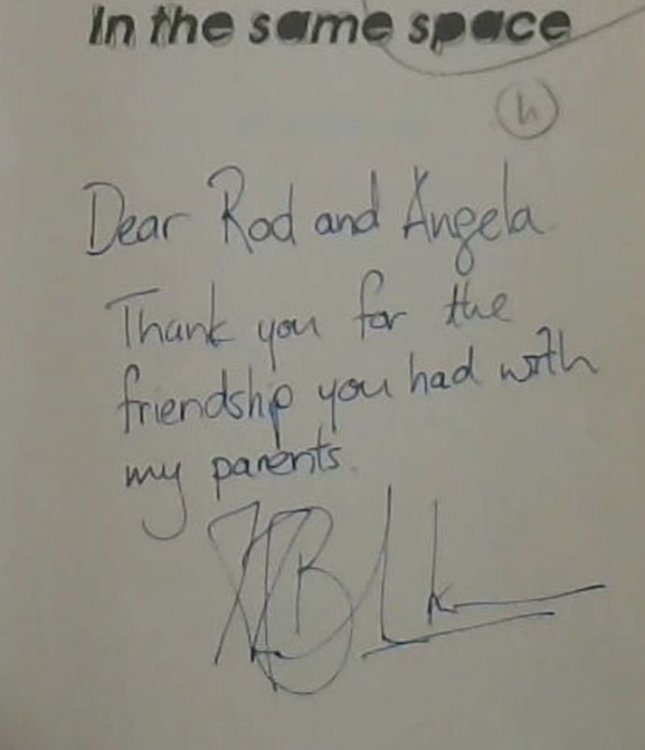 In the same space
h
Dear Rod and Angela
Thank you for the
friendship you had with
my parents.